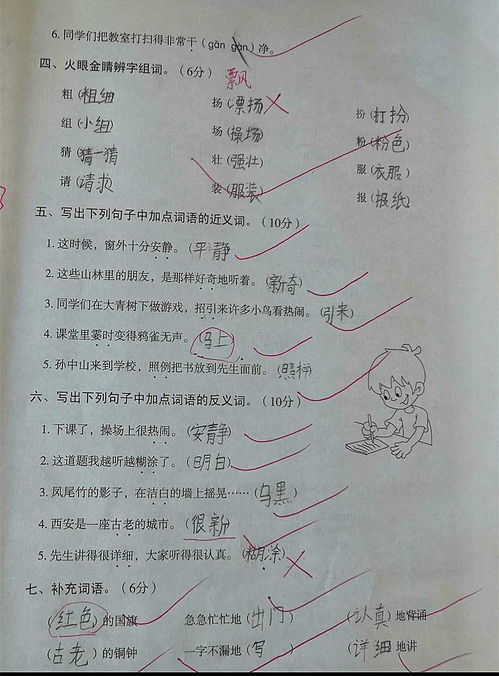 6. 同学们把教室打扫得非常干（gān gàn）净。
四、火眼金睛辨字组词。（6分） 飘
粗（粗细 扬（漂扬 扮（打扮）
组（小组） 场（操场） 粉（粉色）
猜（猜一猜 壮（强壮） 服（衣服）
请（请求 装（服装） 报（报纸）
五、写出下列句子中加点词语的近义词。（10分）
1. 这时候，窗外十分安静。（平静）
2. 这些山林里的朋友，是那样好奇地听着。（新奇）
3. 同学们在大青树下做游戏，招引来许多小鸟看热闹。（引来）
4. 课堂里霎时变得鸦雀无声。（马上）
5. 孙中山来到学校，照例把书放到先生面前。（照样）
六、写出下列句子中加点词语的反义词。（10分）
1. 下课了，操场上很热闹。（安静）
2. 这道题我越听越糊涂了。（明白）
3. 凤尾竹的影子，在洁白的墙上摇晃……（乌黑）
4. 西安是一座古老的城市。（很新）
5. 先生讲得很详细，大家听得很认真。（糊涂）
七、补充词语。（6分）
（红色）的国旗 急急忙忙地（出门） （认真）地背诵
（古老）的铜钟 一字不漏地（写） （详细）地讲